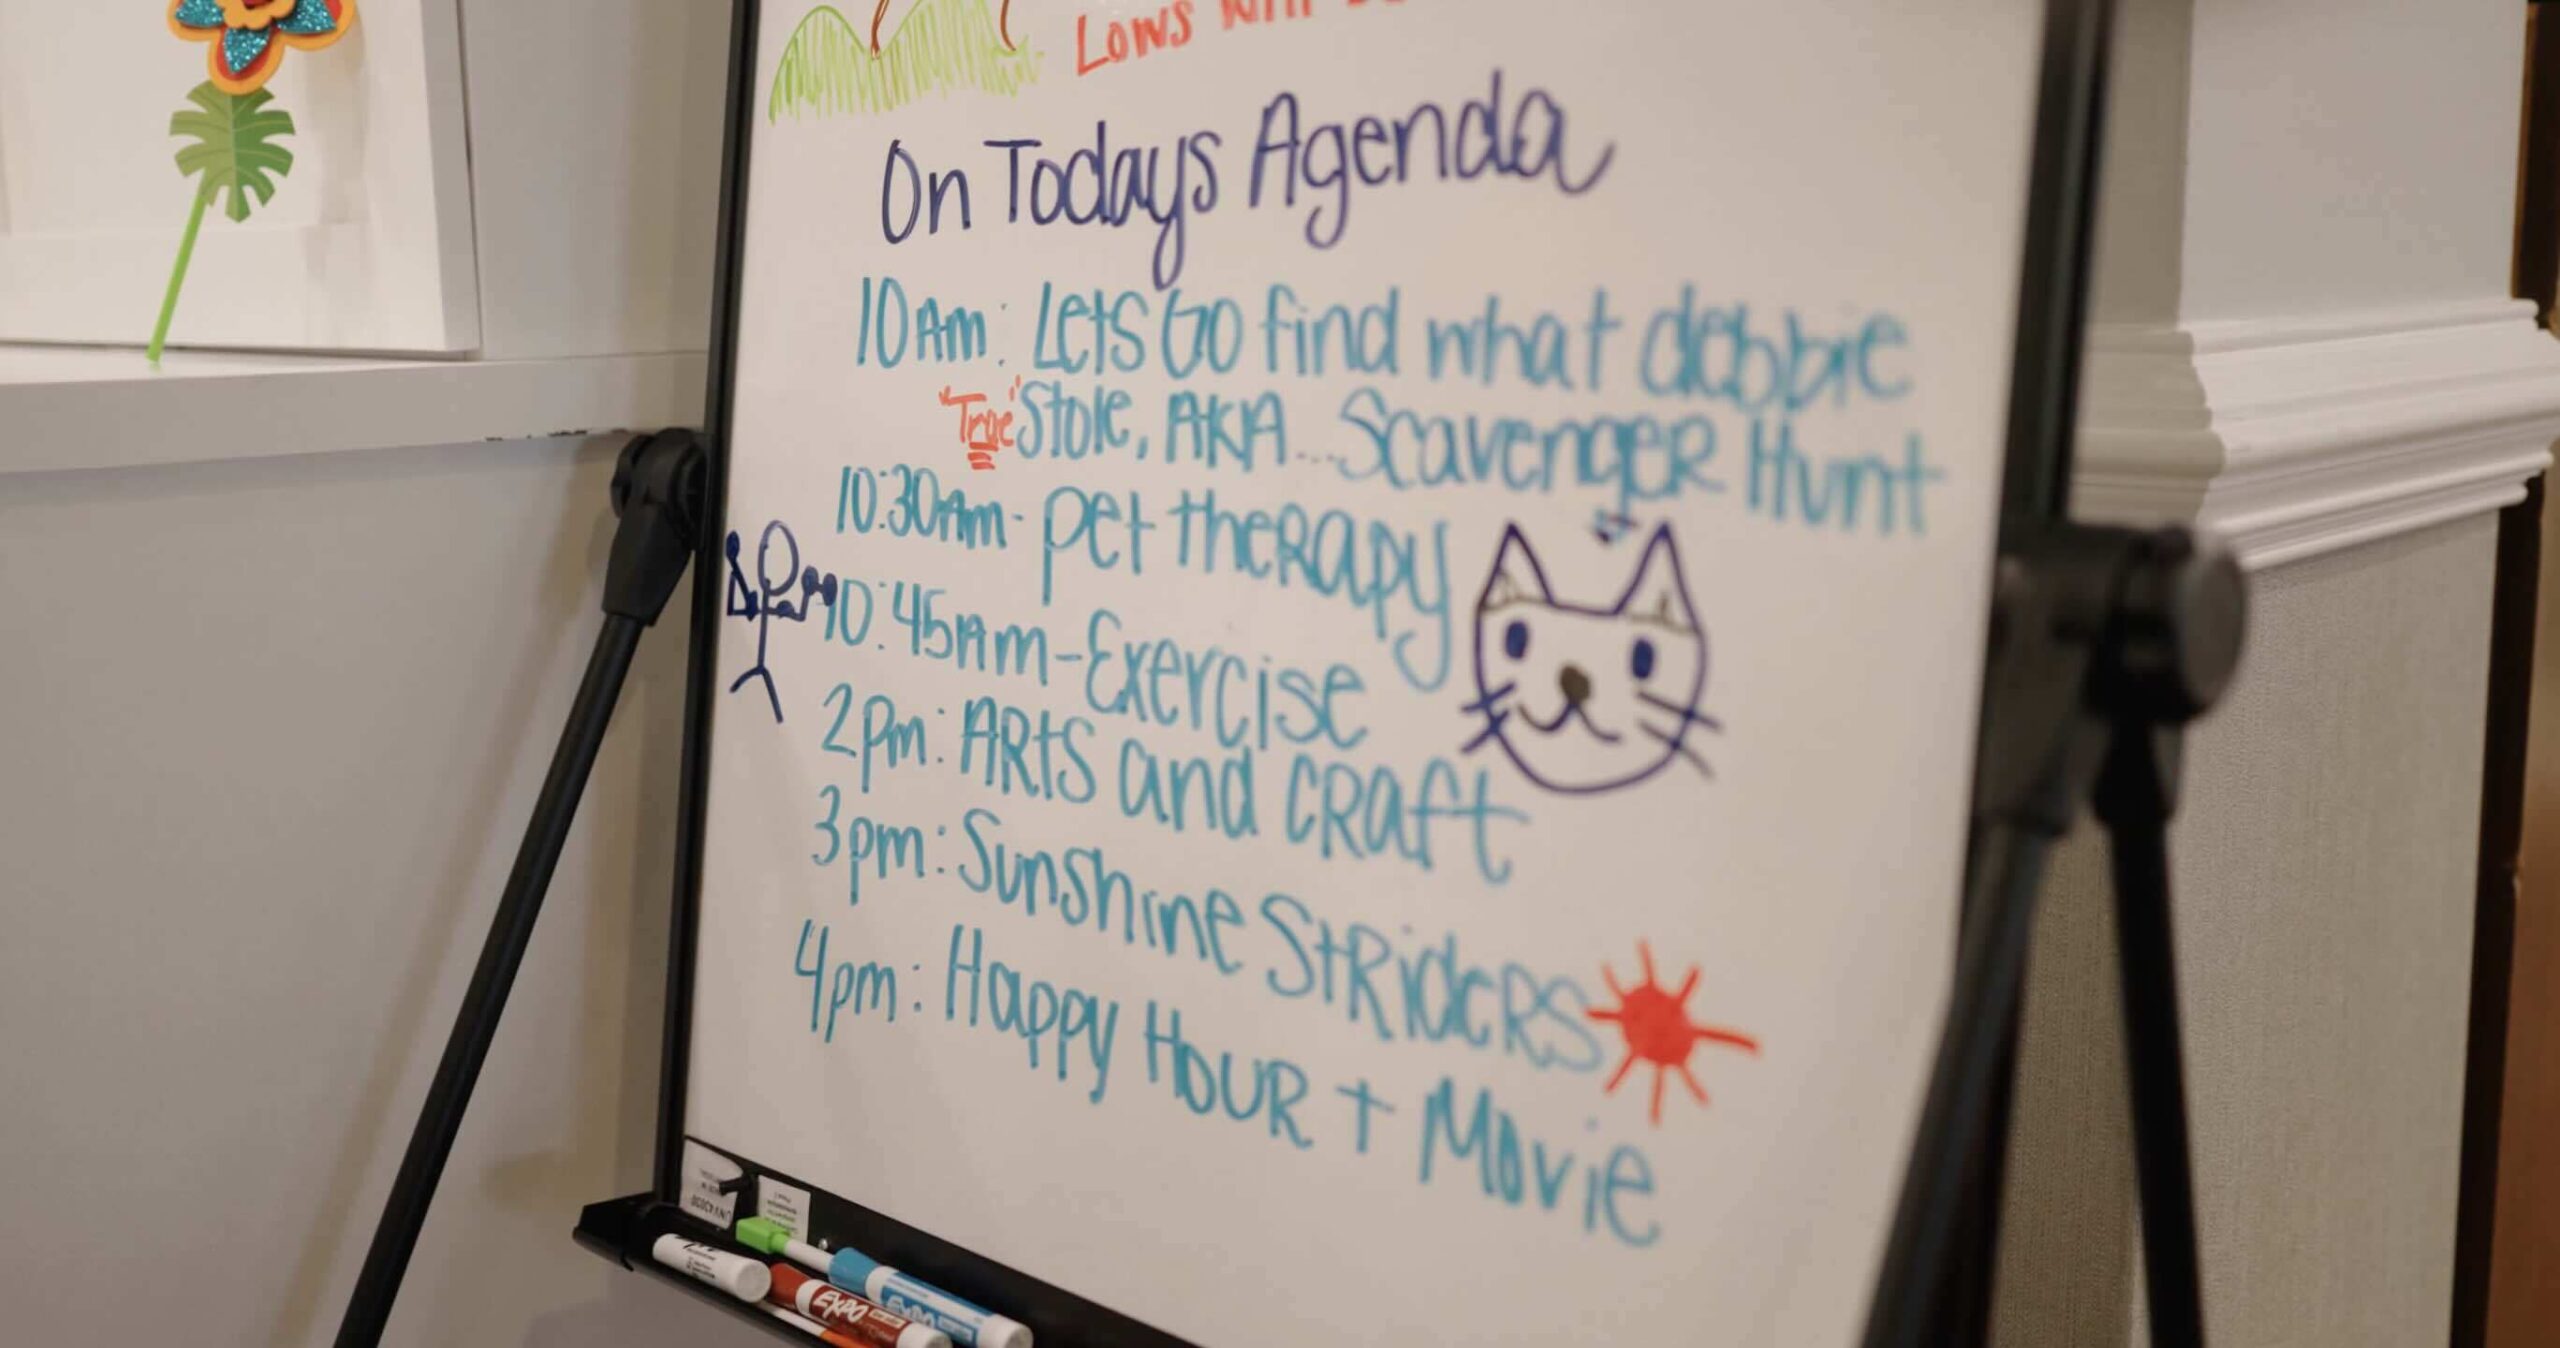 Lows Will
On Todays Agenda
10Am: Lets Go find what debbie
"True" Stole, AKA... Scavenger Hunt
10:30Am- pet therapy
10:45Am-Exercise
2pm: ARts and craft
3pm: Sunshine StRiders
4pm: Happy Hour + Movie
EXPO
EXPO